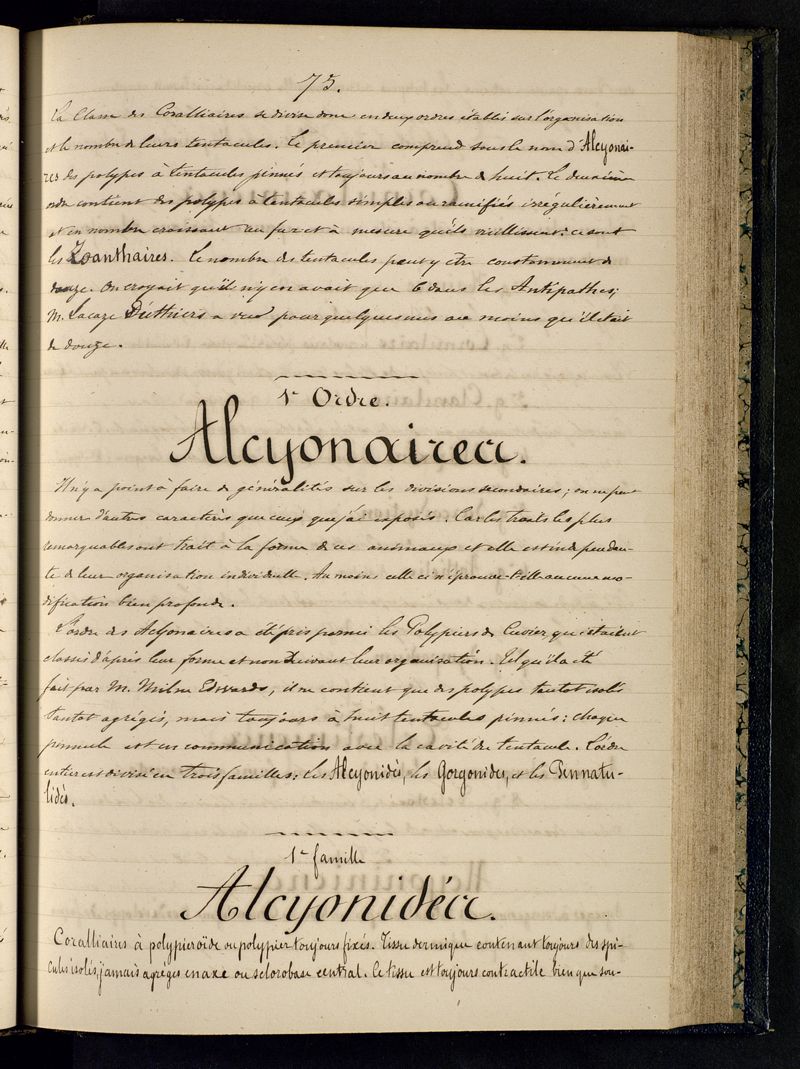 75.
La Classe des Coralliaires se divise donc en deux ordres établis sur l'organisation
et le nombre de leurs tentacules. Le premier comprend sous le nom d'Alcyonai-
res des polypes à tentacules pinnés et toujours au nombre de huit. Le deuxième
ordre contient des polypes à tentacules simples ou ramifiés irrégulièrement
et en nombre croissant au fur et à mesure qu'ils vieillissent: ce sont
les Zoanthaires. Le nombre des tentacules peut y être constamment de
douze. On croyait qu'il n'y en avait que 6 dans les Antipathes;
M. Lacaze Duthiers a vu pour quelques uns au moins qu'il était
de douze.
1er Ordre.
Alcyonaires.
Il n'y a point à faire de généralités sur les divisions secondaires; on ne peut
donner d'autres caractères que ceux que j'ai exposés. Car les traits les plus
remarquables ont trait à la forme de ces animaux et elle est indépendan-
te de leur organisation individuelle. Au moins celle ci n'éprouve-t-elle aucune mo-
dification bien profonde.
L'ordre des Alcyonaires a été pris parmi les Polypiers de Cuvier, qui étaient
classés d'après leur forme et non suivant leur organisation. Tel qu'il a été
fait par M. Milne Edwards, il ne contient que des polypes tantot isolés
tantot agrégés, mais toujours à huit tentacules pinnés: chaque
pinnule est en communication avec la cavité du tentacule. L'ordre
entier est divisé en trois familles: les Alcyonidés, les Gorgonides, et les Pennatu-
lidés.
1re famille
Alcyonidés.
Coralliaires à polypieroïde ou polypier toujours fixés. Tissu dermique contenant toujours des spi-
cules isolés, jamais agrégés en axe ou sclerobase central. Ce tissu est toujours contractile bien que sou-